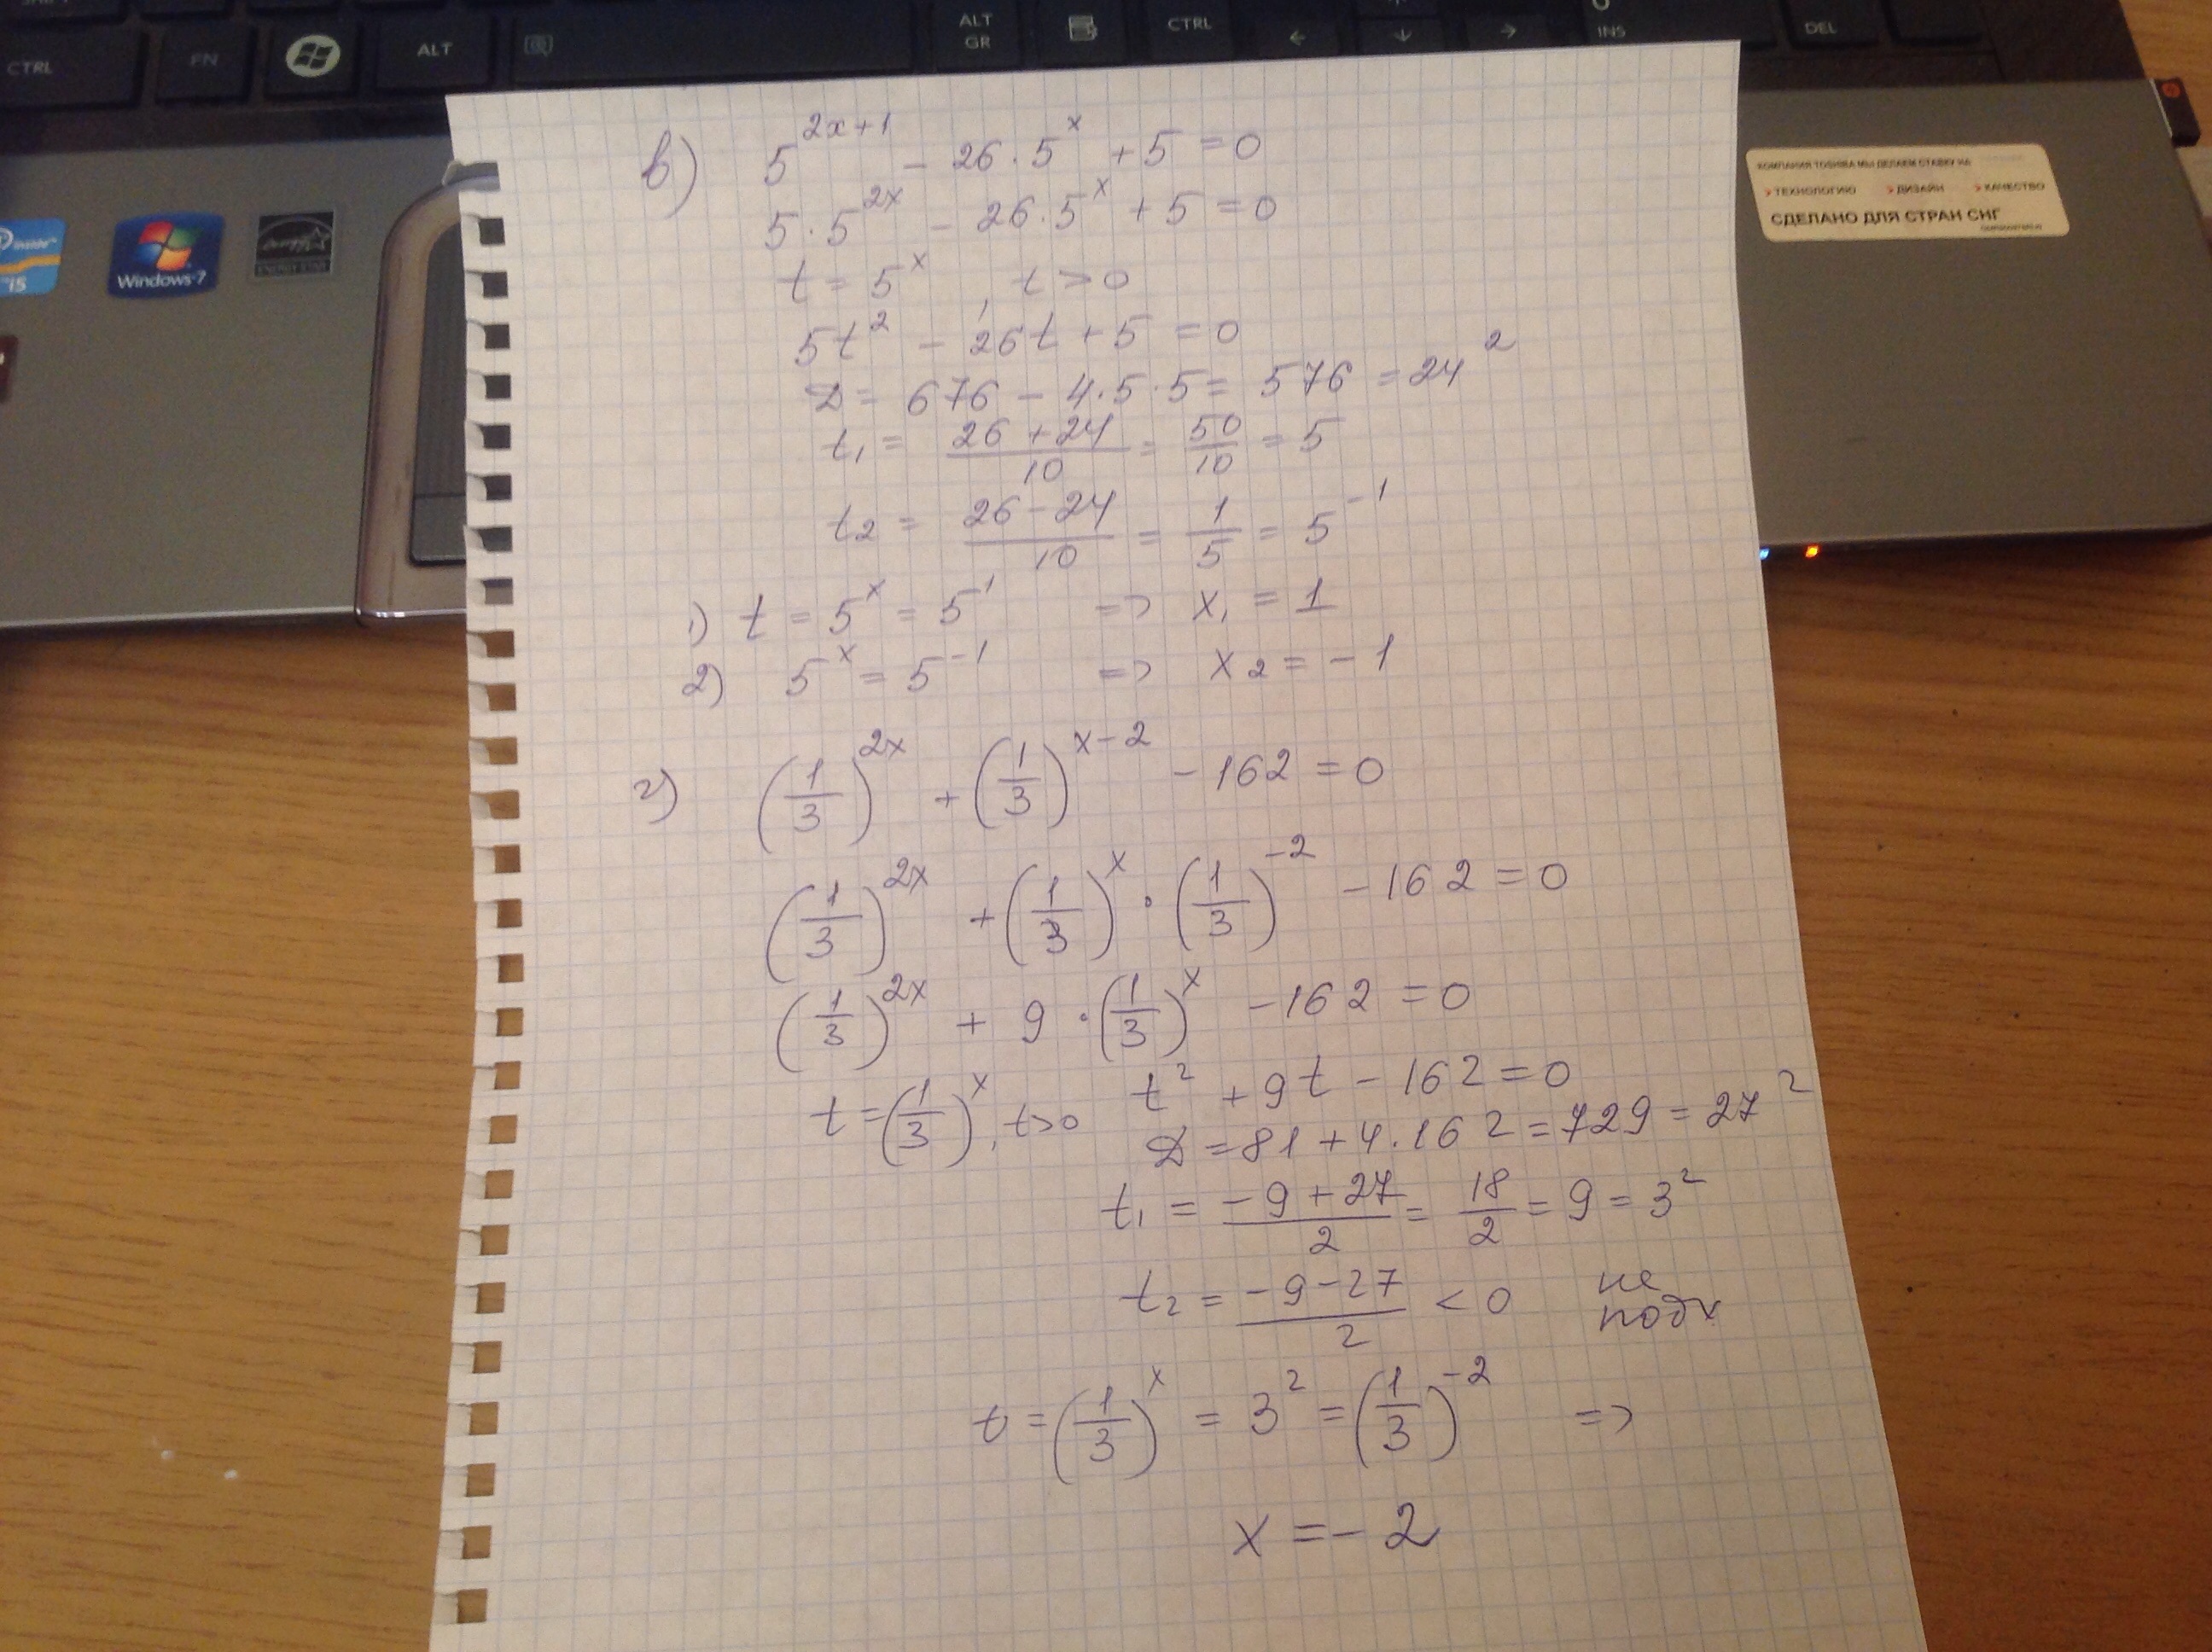 CTRL
FN
ALT
ALT GR
CTRL
INS
DEL
inside™
i5
Windows 7
ENERGY STAR
КОМПАНИЯ TOSHIBA МЫ ДЕЛАЕМ СТАВКУ НА
> ТЕХНОЛОГИЮ > ДИЗАЙН > КАЧЕСТВО
СДЕЛАНО ДЛЯ СТРАН СНГ
в) 5^{2x+1} - 26·5^x + 5 = 0
5·5^{2x} - 26·5^x + 5 = 0
t = 5^x, t > 0
5t² - 26t + 5 = 0
D = 676 - 4·5·5 = 576 = 24²
t₁ = (26+24)/10 = 50/10 = 5
t₂ = (26-24)/10 = 1/5 = 5^{-1}
1) t = 5^x = 5^1 => x₁ = 1
2) 5^x = 5^{-1} => x₂ = -1
г) (1/3)^{2x} + (1/3)^{x-2} - 162 = 0
(1/3)^{2x} + (1/3)^x · (1/3)^{-2} - 162 = 0
(1/3)^{2x} + 9 · (1/3)^x - 162 = 0
t = (1/3)^x, t>0 t² + 9t - 162 = 0
D = 81 + 4·162 = 729 = 27²
t₁ = (-9+27)/2 = 18/2 = 9 = 3²
t₂ = (-9-27)/2 < 0 не подх
t = (1/3)^x = 3² = (1/3)^{-2} =>
x = -2